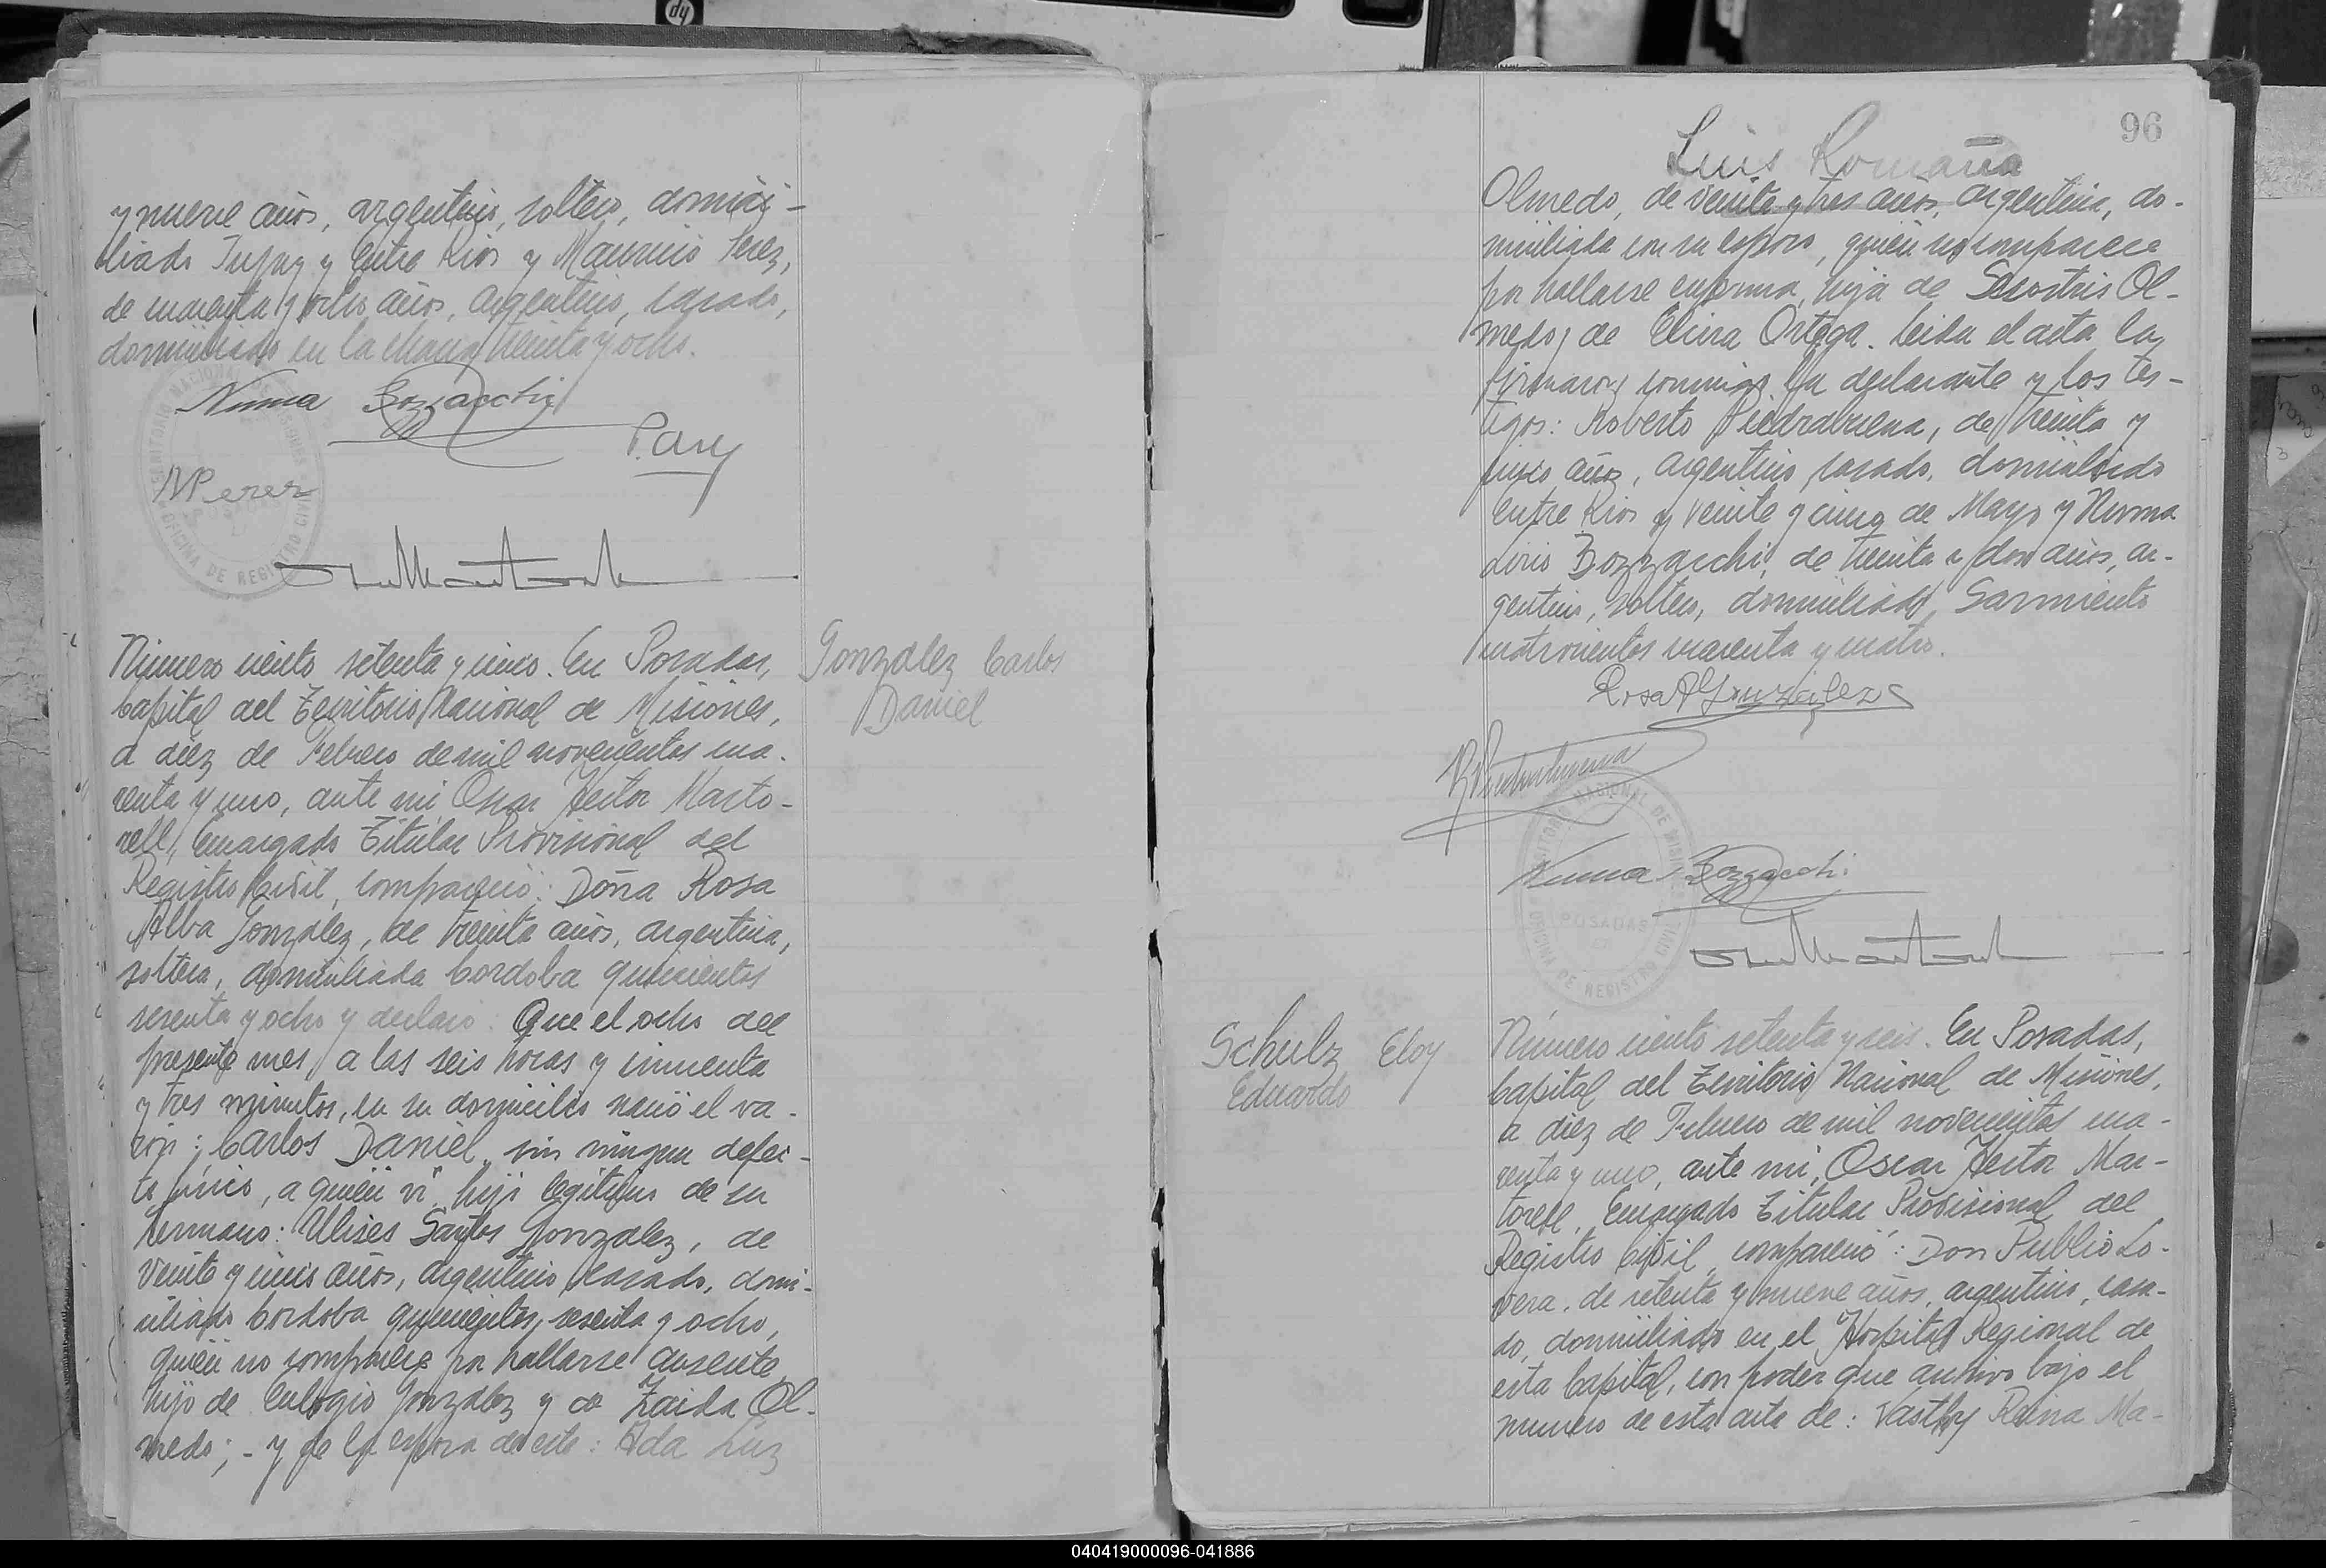 y nueve años, argentino, soltero, domici-
liado Tupuy y Entre Rios y Mauricio Perez,
de cuarenta y ocho años, argentino, casado,
domiciliado en la chacra treinta y ocho.
Numa Bozzacchi
MPerez
Número ciento setenta y cinco. En Posadas,
Capital del Territorio Nacional de Misiones,
a diez de Febrero de mil novecientos cua-
renta y uno, ante mi Oscar Hector Marto-
rell, Encargado Titular Provisional del
Registro Civil, compareció: Doña Rosa
Alba González, de treinta años, argentina,
soltera, domiciliada Cordoba quinientos
sesenta y ocho y declaro: Que el ocho del
presente mes, a las seis horas y cincuenta
y tres minutos, en su domicilio nació el va-
rón: Carlos Daniel, sin ningun defec-
to físico, a quién ví, hijo legítimo de su
hermano: Ulises Santos Gonzalez, de
veinte y cinco años, argentino, casado, domi-
ciliado Cordoba quinientos, sesenta y ocho,
quién no comparece por hallarse ausente,
hijo de Eulogio González y de Zaida Ol-
medo; - y de la esposa de este: Ada Luz
González Carlos
Daniel
96
Luis Romaña
Olmedo, de veinte y tres años, argentina, do-
miciliada con su esposo, quién no comparece
por hallarse enferma, hija de Sesostris Ol-
medo y de Elvira Ortega. Leida el acta la
firmaron conmigo la declarante y los tes-
tigos: Roberto Piedrabuena, de treinta y
cinco años, argentino, casado, domiciliado
Entre Rios y veinte y cinco de Mayo y Numa
Lirio Bozzacchi, de treinta y dos años, ar-
gentino, soltero, domiciliado, Sarmiento
cuatrocientos cuarenta y cuatro.
Rosa A González
RPiedrabuena
Numa Bozzacchi
TERRITORIO NACIONAL DE MISIONES
POSADAS
OFICINA DE REGISTRO CIVIL
Schulz Eloy
Eduardo
Número ciento setenta y seis. En Posadas,
Capital del Territorio Nacional de Misiones,
a diez de Febrero de mil novecientos cua-
renta y uno, ante mi, Oscar Hector Mar-
torell, Encargado Titular Provisional del
Registro Civil, compareció: Don Publio Lo-
vera, de setenta y nueve años, argentino, casa-
do, domiciliado en el Hospital Regional de
esta Capital, con poder que archivo bajo el
numero de esta acta de: Vasthy Reina Ma-
040419000096-041886